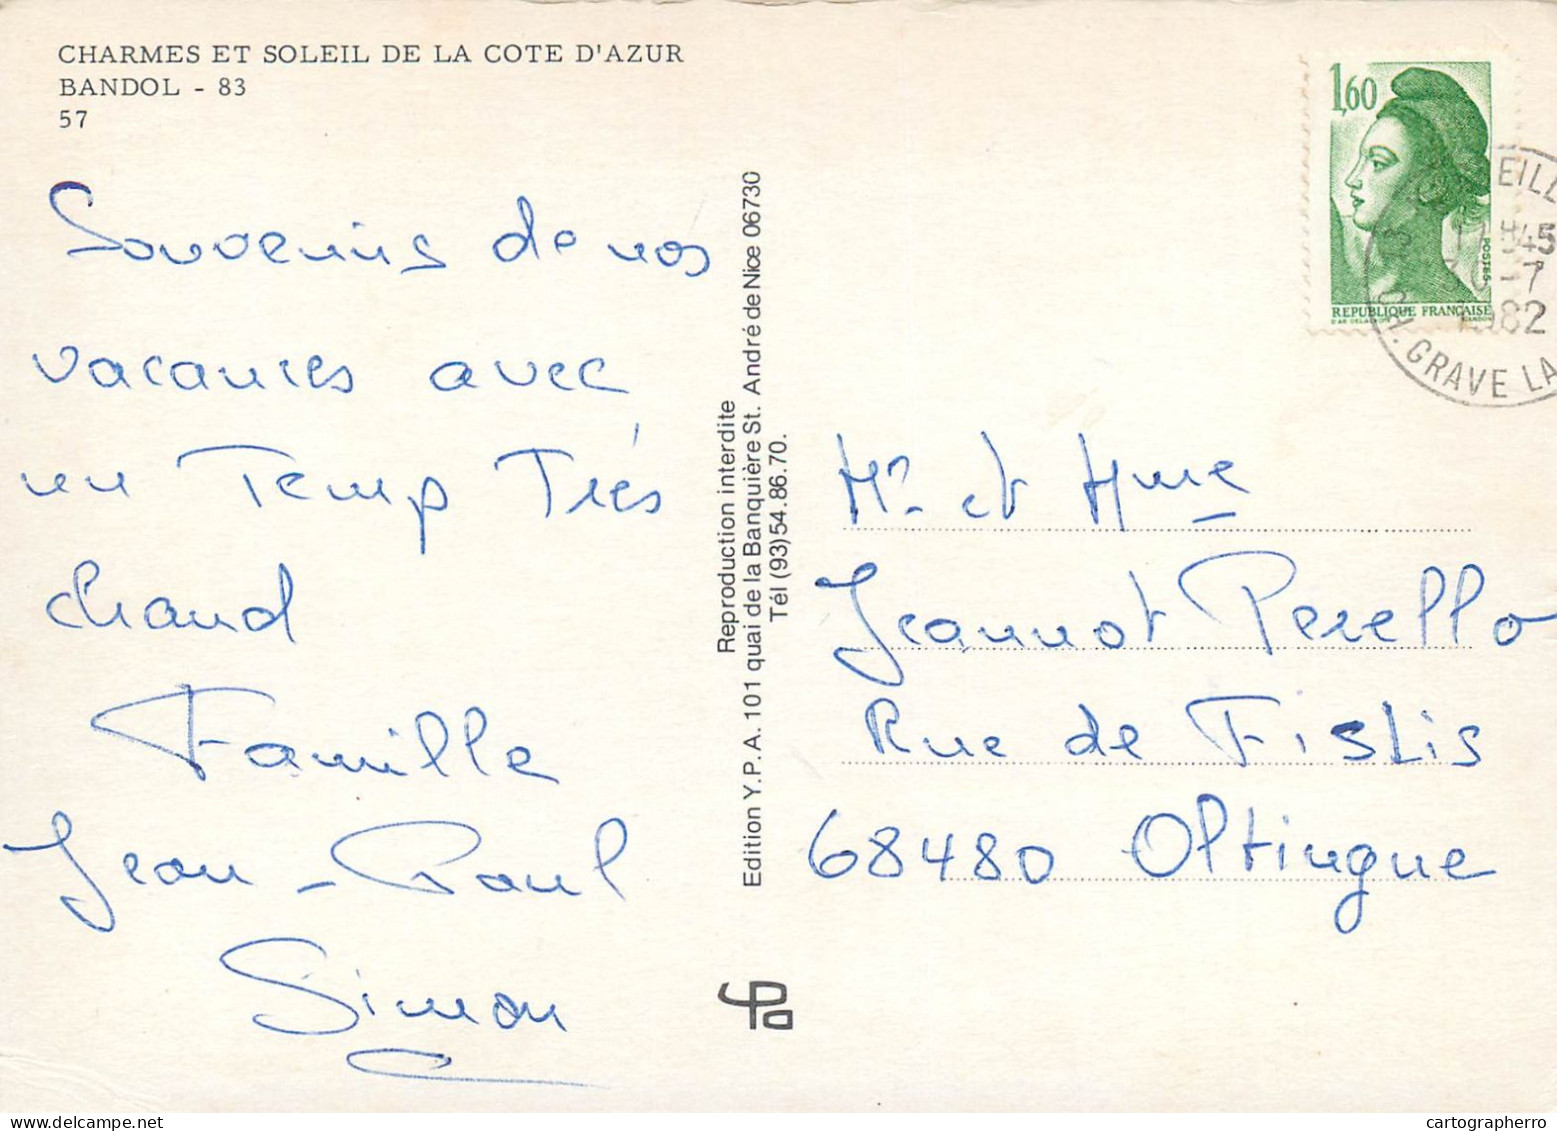 CHARMES ET SOLEIL DE LA COTE D'AZUR
BANDOL - 83
57
Souvenirs de nos
vacances avec
un Temp Trés
chaud
Famille
Jean-Paul
Simon
Reproduction interdite
Edition Y.P.A. 101 quai de la Banquière St. André de Nice 06730
Tél (93) 54.86.70.
1,60
POSTES
REPUBLIQUE FRANÇAISE
EILL
45
-7
1982
GRAVE LA
Mr. et Mme
Jeannot Perello
Rue de Fislis
68480 Oltingue
delcampe.net
cartographerro